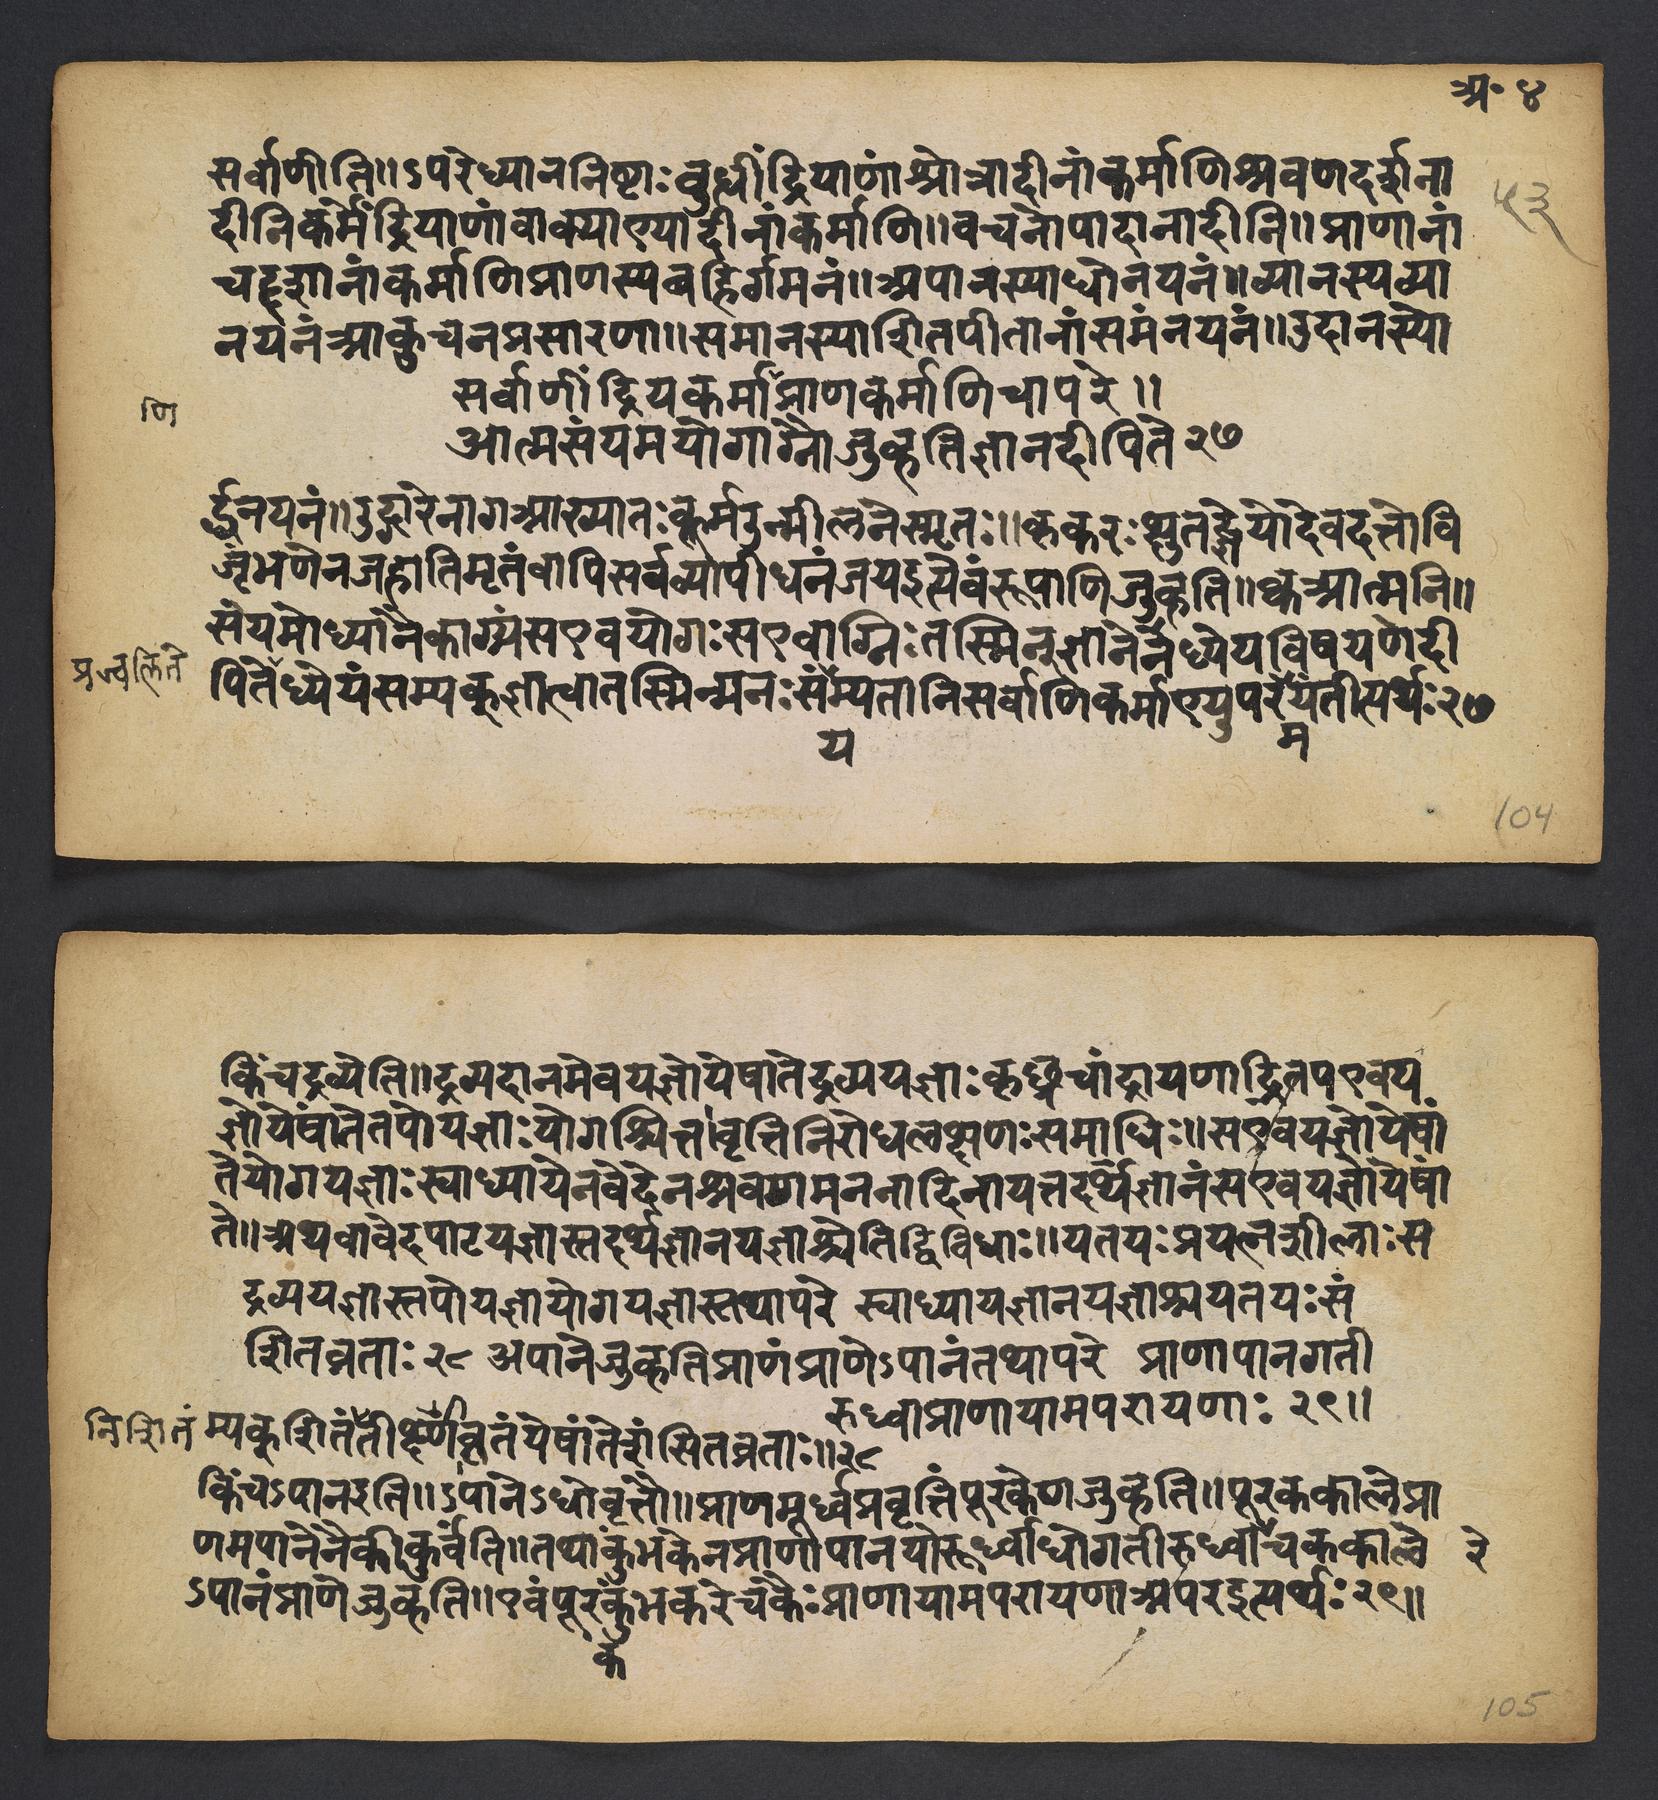 अ॰ ४
सर्वाणीति॥ऽपरेध्याननिष्टाःबुधींद्रियाणांश्रोत्रादीनांकर्माणिश्रवणदर्शना
५३
दीनिकर्मेंद्रियाणांवाक्पाण्यादीनांकर्माणि॥वचनोपादानादीनि॥प्राणानां
चदृशानांकर्माणिप्राणस्यबहिर्गमनं॥अपानस्याधोनयनं॥व्यानस्यव्या
नयनंआकुचनप्रसारणा॥समानस्याशितपीतानांसमंनयनं॥उदानस्यो
सर्वाणींद्रियकर्माप्राणकर्माणिचापरे॥
णि
आत्मसंयमयोगाग्नौजुह्वतिज्ञानदीपिते२७
र्द्धनयनं॥उद्गारेनागआख्यातःकूर्मउन्मीलनेस्मृतः॥कृकरःक्षुतद्ज्ञेयोदेवदत्तोवि
जृंभणेनजहोतिमृतंवापिसर्वव्यापीधनंजयइत्येवंरूपाणिजुह्वति॥क्वआत्मनि॥
संयमोध्यानैकाग्र्यंसएवयोगःसएवाग्निःतस्मिन्ज्ञानेनध्येयविषयेणदी
प्रज्वलिते
पितेध्येयंसम्यक्ज्ञात्वातस्मिन्मनःसंम्यतानिसर्वाणिकर्माण्युपरयंतीत्यर्थः२७
य
म
104
किंचद्रव्येति॥द्रव्यदानमेवयज्ञोयेषांतेद्रव्ययज्ञाःकृछ्रचांद्रायणाद्रितपएवय
ज्ञोयेषांतेतपोयज्ञाःयोगश्चित्तवृत्तिनिरोधलक्षणःसमाधिः॥सएवयज्ञोयेषां
तेयोगयज्ञाःस्वाध्यायेनवेदेनश्रवणमननादिनायत्तदर्थज्ञानंसएवयज्ञोयेषां
ते॥अथवावेदपाटयज्ञास्तदर्थज्ञानयज्ञाश्चेतिद्विविधाः॥यतयःप्रयत्नशीलाःस
द्रव्ययज्ञास्तपोयज्ञायोगयज्ञास्तथापरे स्वाध्यायज्ञानयज्ञाश्चयतयःसं
शितव्रताः२८ अपानेजुह्वतिप्राणंप्राणेऽपानंतथापरे प्राणापानगती
रुध्वाप्राणायामपरायणाः २९॥
निशितं
म्यक्शितंतीक्ष्णीव्रतंयेषांतेशंसितव्रताः॥२८
किंचऽपानइति॥ऽपानेऽधोवृत्तौ॥प्राणमूर्ध्वप्रवृत्तिंपूरकेणजुह्वति॥पूरककालेप्रा
णमपानेनैकीकुर्वंति॥तथाकुंभकेनप्राणापानयोरूर्ध्वाधोगतीरुर्ध्वाचककाले
रे
ऽपानंप्राणेजुह्वति॥एवंपूरकुंभकरेचकैःप्राणायामपरायणाअपरइत्यर्थः२९॥
क
105